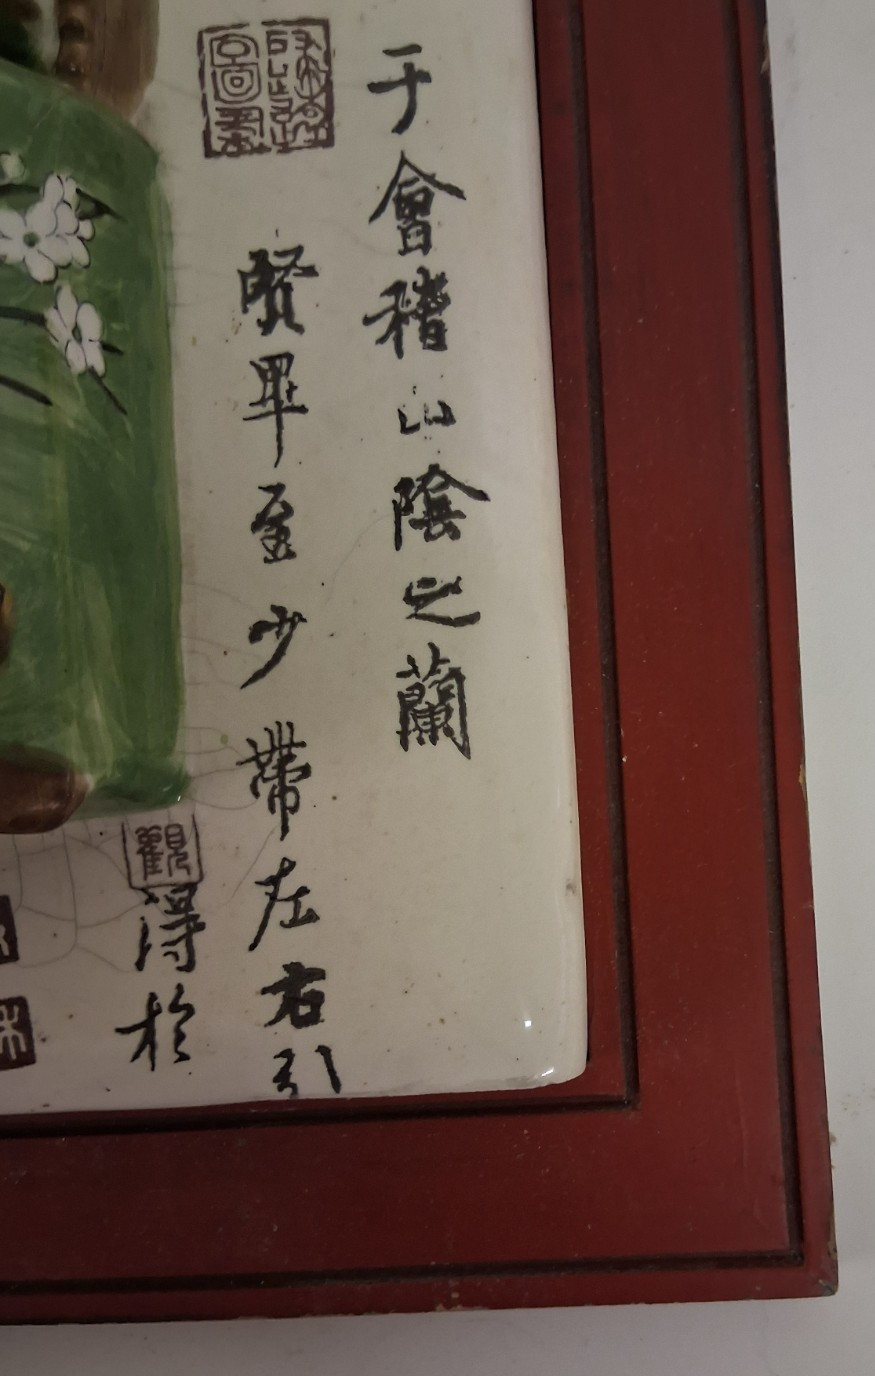 于會稽山陰之蘭
賢畢至少帶左右引
觀
得於